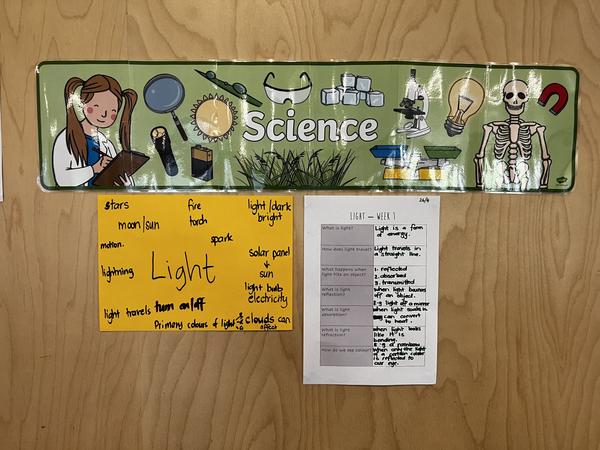 Science
stars
fire
light/dark
bright
moon/sun
torch
motion.
spark
lightning
Light
solar panel
↓
sun
light bulb
electricity
light travels turn on/off
Primary colours of light
clouds can
affect
26/9
LIGHT – WEEK 1
What is light?
Light is a form
of energy.
How does light travel?
Light travels in
a straight line.
What happens when
light hits an object?
1. reflected
2. absorbed
3. transmitted
What is light
reflection?
when light bounces
off an object.
E.g light off a mirror
What is light
absorption?
when light soaks in
can convert
to heat.
What is light
refraction?
when light looks
like it is
bending.
E.g. a rainbow
How do we see colour?
when only the light
of a certain color
is reflected to
our eye.